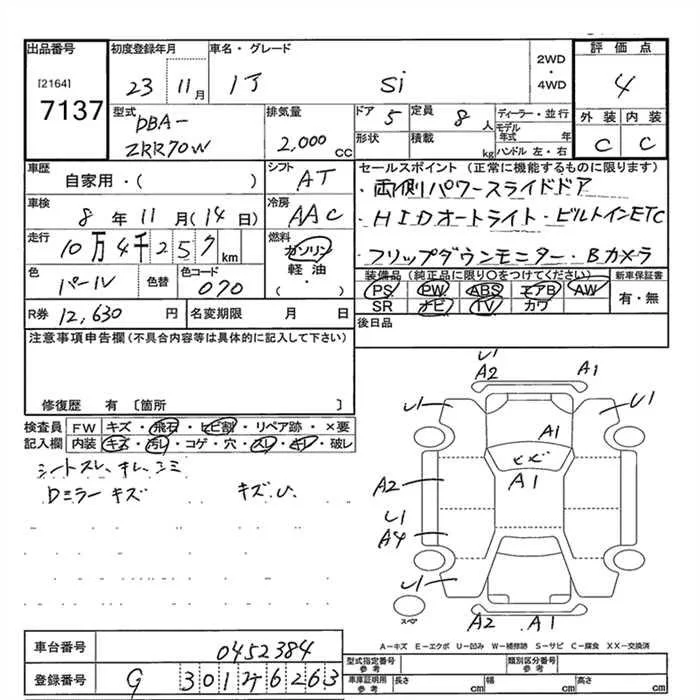 出品番号
[2164]
7137
初度登録年月
23 11月
車名・グレード
Si
2WD
・
4WD
評価点
4
外装 内装
C C
型式
DBA-
ZRR70W
排気量
2,000 CC
ドア 5
定員 8人
形状
積載 kg
ディーラー・並行
モデル年式 年
ハンドル 左・右
車歴
自家用・( )
シフト
AT
車検
8年11月(14日)
冷房
AAC
走行
10万4千257km
燃料
ガソリン
軽油
・
( )
色
パール
色替
色コード
070
R券 12,630円
名変期限 月 日
セールスポイント(正常に機能するものに限ります)
・両側パワースライドドア
・HIDオートライト・ビルトインETC
・フリップダウンモニター・Bカメラ
装備品(純正品に限り○をつけてください)
PS PW ABS エアB AW
SR ナビ TV カワ
新車保証書
有・無
後日品
注意事項申告欄(不具合内容等は具体的に記入して下さい)
修復歴 有 〔箇所 〕
検査員記入欄
FW キズ・飛石・ヒビ割・リペア跡・×要
内装 キズ・汚レ・コゲ・穴・スレ・キレ・破レ
シートスレ、キレ、シミ
Dミラーキズ キズ、U
U1
A2 A1
U1 U1
A1
A1
A2
U1
A4
U1
A2 A1
スペア
A-キズ E-エクボ U-凹み W-補修跡 S-サビ C-腐食 XX-交換済
車台番号 0452384
登録番号
型式指定番号 参考
類別区分番号 参考
車庫証明用 参考
長さ cm
幅 cm
高さ cm